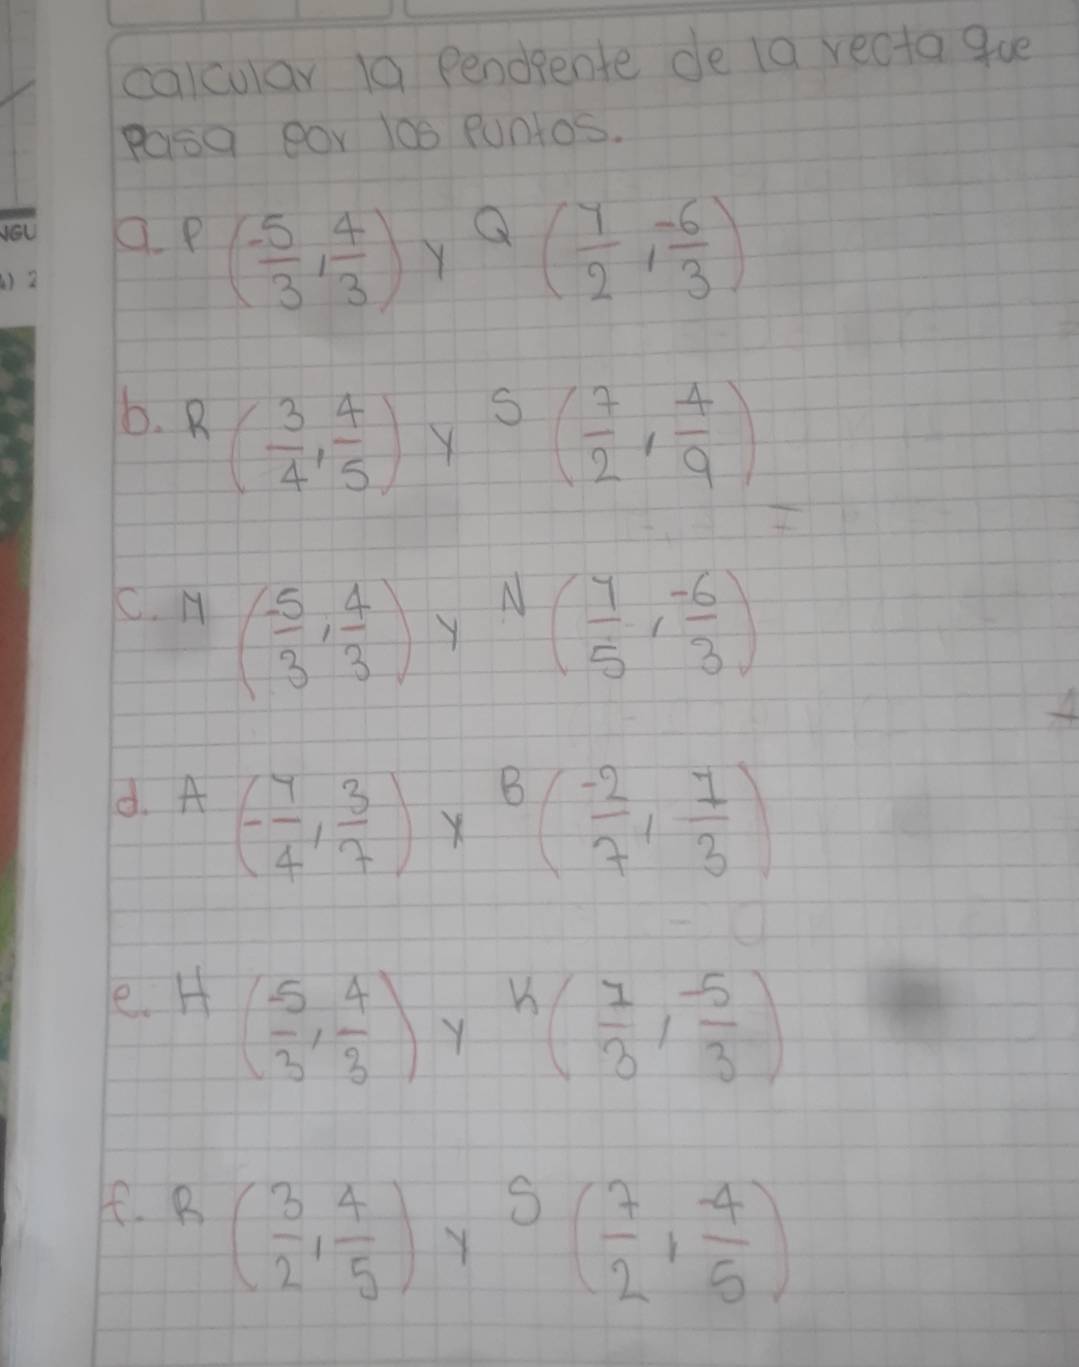 calcular la pendiente de la recta que
pasa por los puntos.
a. P (-5/3, 4/3) y Q (1/2, -6/3)
b. R (3/4, 4/5) y S (7/2, 4/9)
=
c. M (-5/3, 4/3) y N (1/5, -6/3)
d. A (-1/4, 3/7) y B (-2/7, 1/3)
e. H (-5/3, 4/3) y K (1/3, -5/3)
f. R (3/2, 4/5) y S (7/2, -4/5)